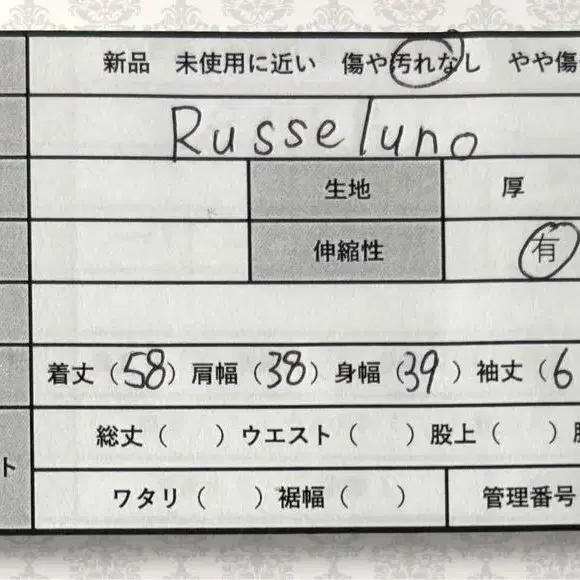 新品 未使用に近い 傷や汚れなし やや傷
Russeluno
生地 厚
伸縮性 有
着丈(58) 肩幅(38) 身幅(39) 袖丈(6
総丈( )ウエスト( )股上( )
ト
ワタリ( )裾幅( ) 管理番号